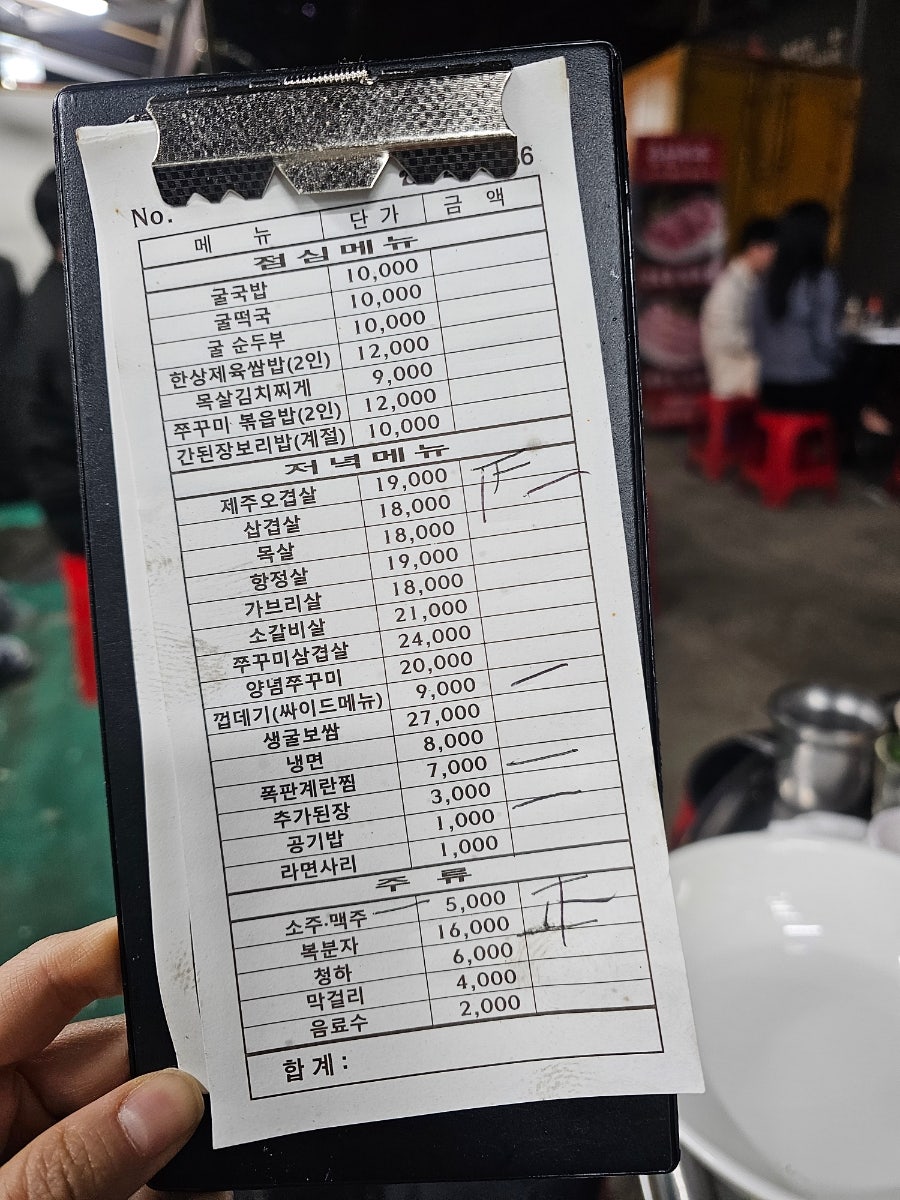 No.
메 뉴 단 가 금 액
점심메뉴
굴국밥 10,000
굴떡국 10,000
굴 순두부 10,000
한상제육쌈밥(2인) 12,000
목살김치찌게 9,000
쭈꾸미 볶읍밥(2인) 12,000
간된장보리밥(계절) 10,000
저녁메뉴
제주오겹살 19,000
삽겹살 18,000
목살 18,000
항정살 19,000
가브리살 18,000
소갈비살 21,000
쭈꾸미삼겹살 24,000
양념쭈꾸미 20,000
껍데기(싸이드메뉴) 9,000
생굴보쌈 27,000
냉면 8,000
폭판계란찜 7,000
추가된장 3,000
공기밥 1,000
라면사리 1,000
주 류
소주·맥주 5,000
복분자 16,000
청하 6,000
막걸리 4,000
음료수 2,000
합 계 :